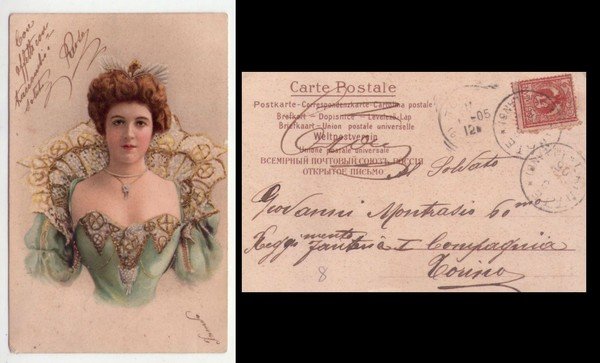 Con
affetto con
Carte Postale
Postkarte-Correspondenzkarte-Cartolina postale
Brefkort - Dopisnice - Levelezö-Lap
Briefkaart - Union postale universelle
Weltpostverein
Unione postale universale
ВСЕМІРНЫЙ ПОЧТОВЫЙ СОЮЗЪ РОССІЯ
ОТКРЫТОЕ ПИСЬМО
05
12
Al Soldato
Giovanni Montrasio 60mo
Reggimento fanteria I Compagnia
Torino
8